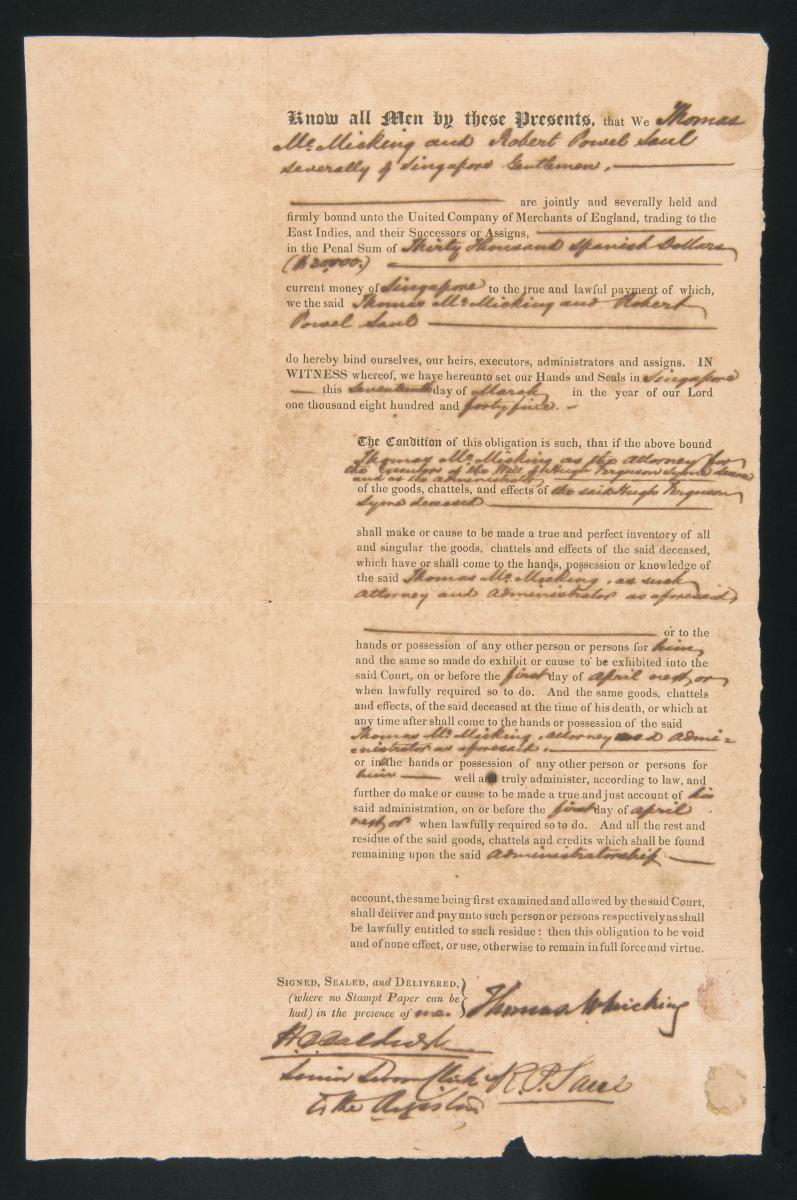 Know all Men by these Presents, that We Thomas
Mc. Micking and Robert Powel Saul
severally of Singapore Gentlemen,
are jointly and severally held and
firmly bound unto the United Company of Merchants of England, trading to the
East Indies, and their Successors or Assigns,
in the Penal Sum of Thirty Thousand Spanish Dollars
($30,000.)
current money of Singapore to the true and lawful payment of which,
we the said Thomas Mc. Micking and Robert
Powel Saul
do hereby bind ourselves, our heirs, executors, administrators and assigns. IN
WITNESS whereof, we have hereunto set our Hands and Seals in Singapore
this Seventeenth day of March in the year of our Lord
one thousand eight hundred and forty five.
The Condition of this obligation is such, that if the above bound
Thomas Mc. Micking as the attorney for
the Executors of the Will of Hugh Ferguson Syme
and as the administrator
of the goods, chattels, and effects of the said Hugh Ferguson
Syme deceased
shall make or cause to be made a true and perfect inventory of all
and singular the goods, chattels and effects of the said deceased,
which have or shall come to the hands, possession or knowledge of
the said Thomas Mc. Micking, as such
attorney and administrator as aforesaid,
or to the
hands or possession of any other person or persons for him,
and the same so made do exhibit or cause to be exhibited into the
said Court, on or before the first day of april next, or
when lawfully required so to do. And the same goods, chattels
and effects, of the said deceased at the time of his death, or which at
any time after shall come to the hands or possession of the said
Thomas Mc. Micking, attorney and admi=
=nistrator as aforesaid.
or in the hands or possession of any other person or persons for
him well and truly administer, according to law, and
further do make or cause to be made a true and just account of his
said administration, on or before the first day of april
next, or when lawfully required so to do. And all the rest and
residue of the said goods, chattels and credits which shall be found
remaining upon the said administratorship
account, the same being first examined and allowed by the said Court,
shall deliver and pay unto such person or persons respectively as shall
be lawfully entitled to such residue: then this obligation to be void
and of none effect, or use, otherwise to remain in full force and virtue.
SIGNED, SEALED, and DELIVERED,
(where no Stampt Paper can be
had) in the presence of me. Thomas McMicking
Senior Sworn Clerk R. P. Saul
to the Registrar